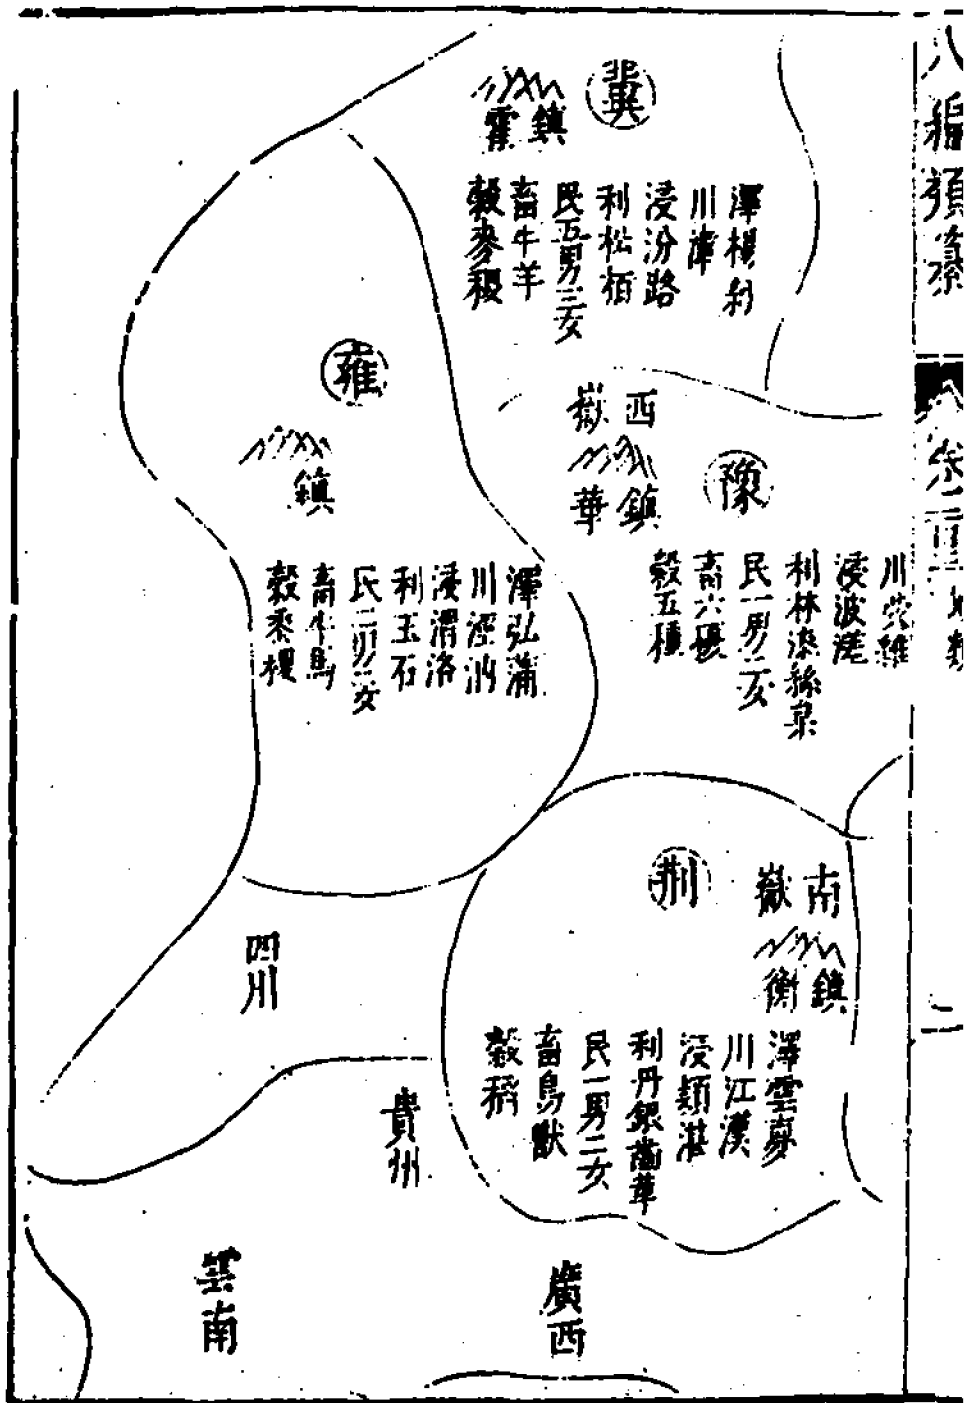 八編類纂
卷之二
地類
冀
鎮
霍
澤楊紆
川漳
浸汾路
利松栢
民五男三女
畜牛羊
穀麥稷
雍
鎮
澤弘蒲
川涇汭
浸渭洛
利玉石
民三男二女
畜牛馬
穀黍稷
西嶽
鎮華
豫
川熒雒
浸波溠
利林漆絲枲
民二男三女
畜六擾
穀五種
荊
南嶽
鎮衡
澤雲夢
川江漢
浸穎湛
利丹銀齒革
民一男二女
畜鳥獸
穀稻
四川
貴州
雲南
廣西